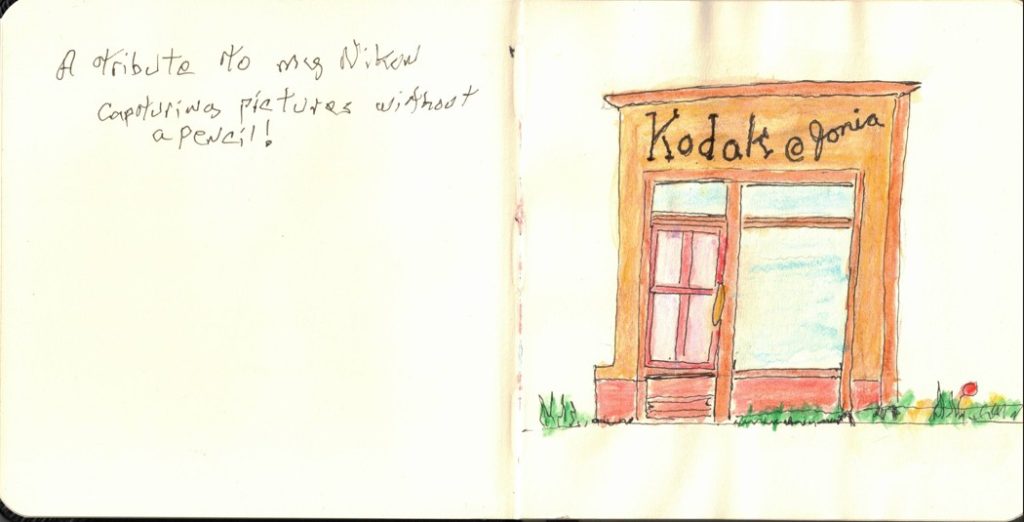 A tribute to my Nikon
Capturing pictures without
a pencil!
Kodak @ Jonia